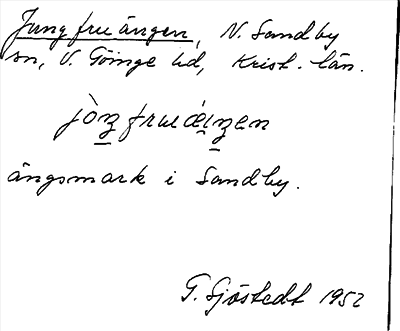 Jungfruängen, N. Sandby
sn, V. Göinge hd, Krist. län.
jòŋfruǽiŋen
ängsmark i Sandby.
G. Sjöstedt 1952